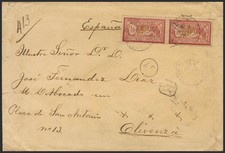 A13
España
Señor D. D.
José Fernandez Diaz
Abogado en
Plaza de San Antonio
nº 13
Olivenza